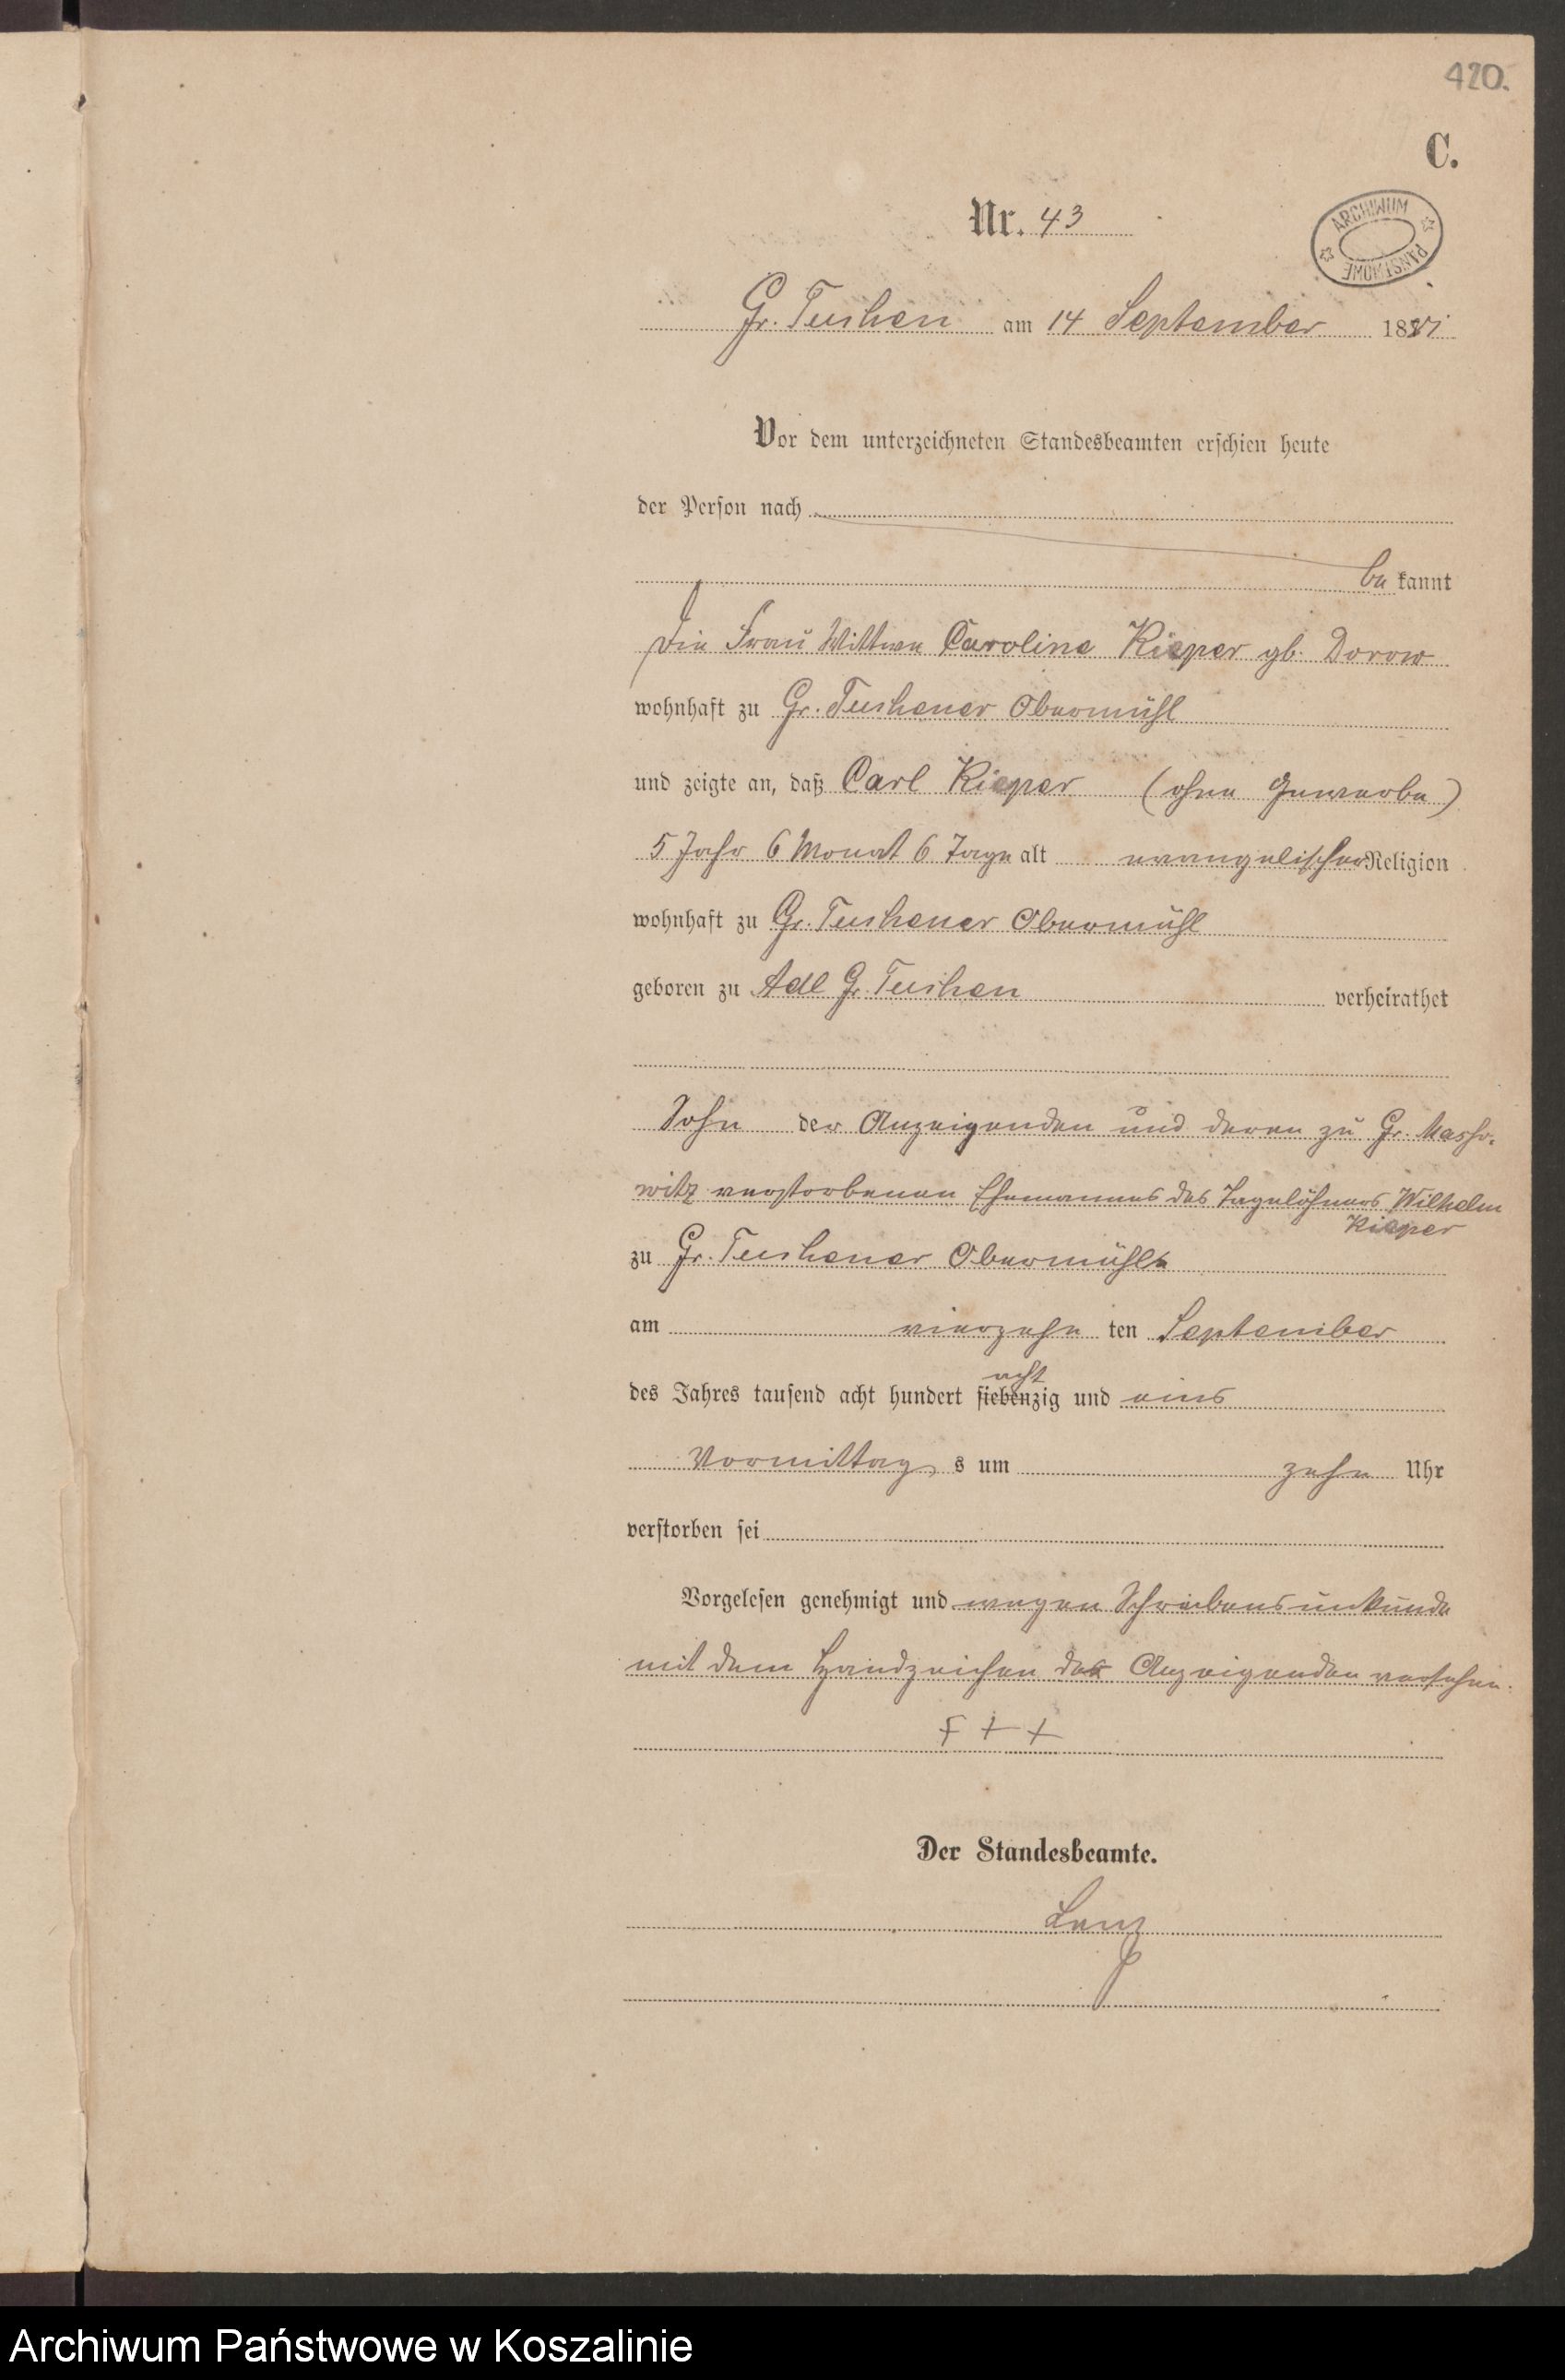 420.
C.
Nr. 43
ARCHIWUM PAŃSTWOWE
Gr. Tuchen am 14 September 1881
Vor dem unterzeichneten Standesbeamten erschien heute
der Person nach
be kannt
Die Frau Wittwe Caroline Kieper gb. Dorow
wohnhaft zu Gr. Tuchener Obermühl
und zeigte an, daß Carl Kieper (ohne Gewerbe)
5 Jahr 6 Monat 6 Tage alt evangelischer Religion
wohnhaft zu Gr. Tuchener Obermühl
geboren zu Adl Gr. Tuchen verheirathet
Sohn der Anzeigenden und deren zu Gr. Masso-
witz verstorbenen Ehemannes des Tagelöhners Wilhelm
Kieper
zu Gr. Tuchener Obermühle
am vierzehn ten September
acht
des Jahres tausend acht hundert siebenzig und eins
Vormittag s um zehn Uhr
verstorben sei
Vorgelesen genehmigt und wegen Schreibensunkunde
mit dem Handzeichen der Anzeigenden versehen.
+ + +
Der Standesbeamte.
Lenz
Archiwum Państwowe w Koszalinie